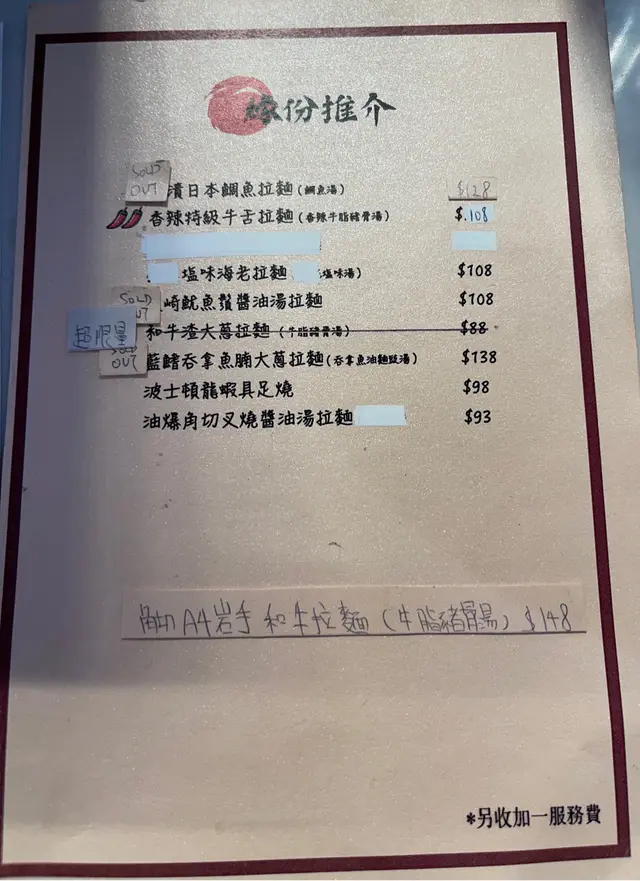 緣份推介
SOLD OUT 漬日本鯛魚拉麵(鯛魚湯) $128
香辣特級牛舌拉麵(香辣牛脂豬骨湯) $.108
塩味海老拉麵 塩味湯) $108
SOLD OUT 崎魷魚鬚醬油湯拉麵 $108
超限量 和牛渣大蔥拉麵(牛脂豬骨湯) $88
SOLD OUT 藍鰭吞拿魚腩大蔥拉麵(吞拿魚油麵豉湯) $138
波士頓龍蝦具足燒 $98
油爆角切叉燒醬油湯拉麵 $93
角切A4岩手和牛拉麵(牛脂豬骨湯) $148
*另收加一服務費